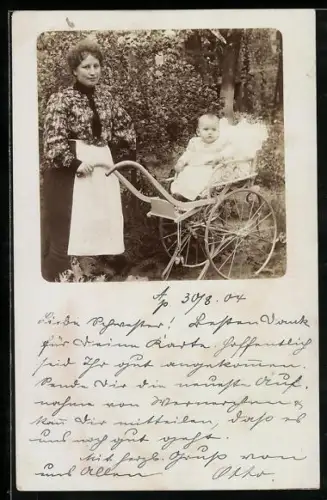 A/p 30/8. 04
Liebe Schwester! Besten Dank
für Deine Karte. Hoffentlich
seid Ihr gut angekommen.
Sende Dir die neueste Auf-
nahme von Wernerchen &
kann Dir mitteilen, daß es
uns noch gut geht.
Mit herzl. Gruß von
uns Allen Otto.